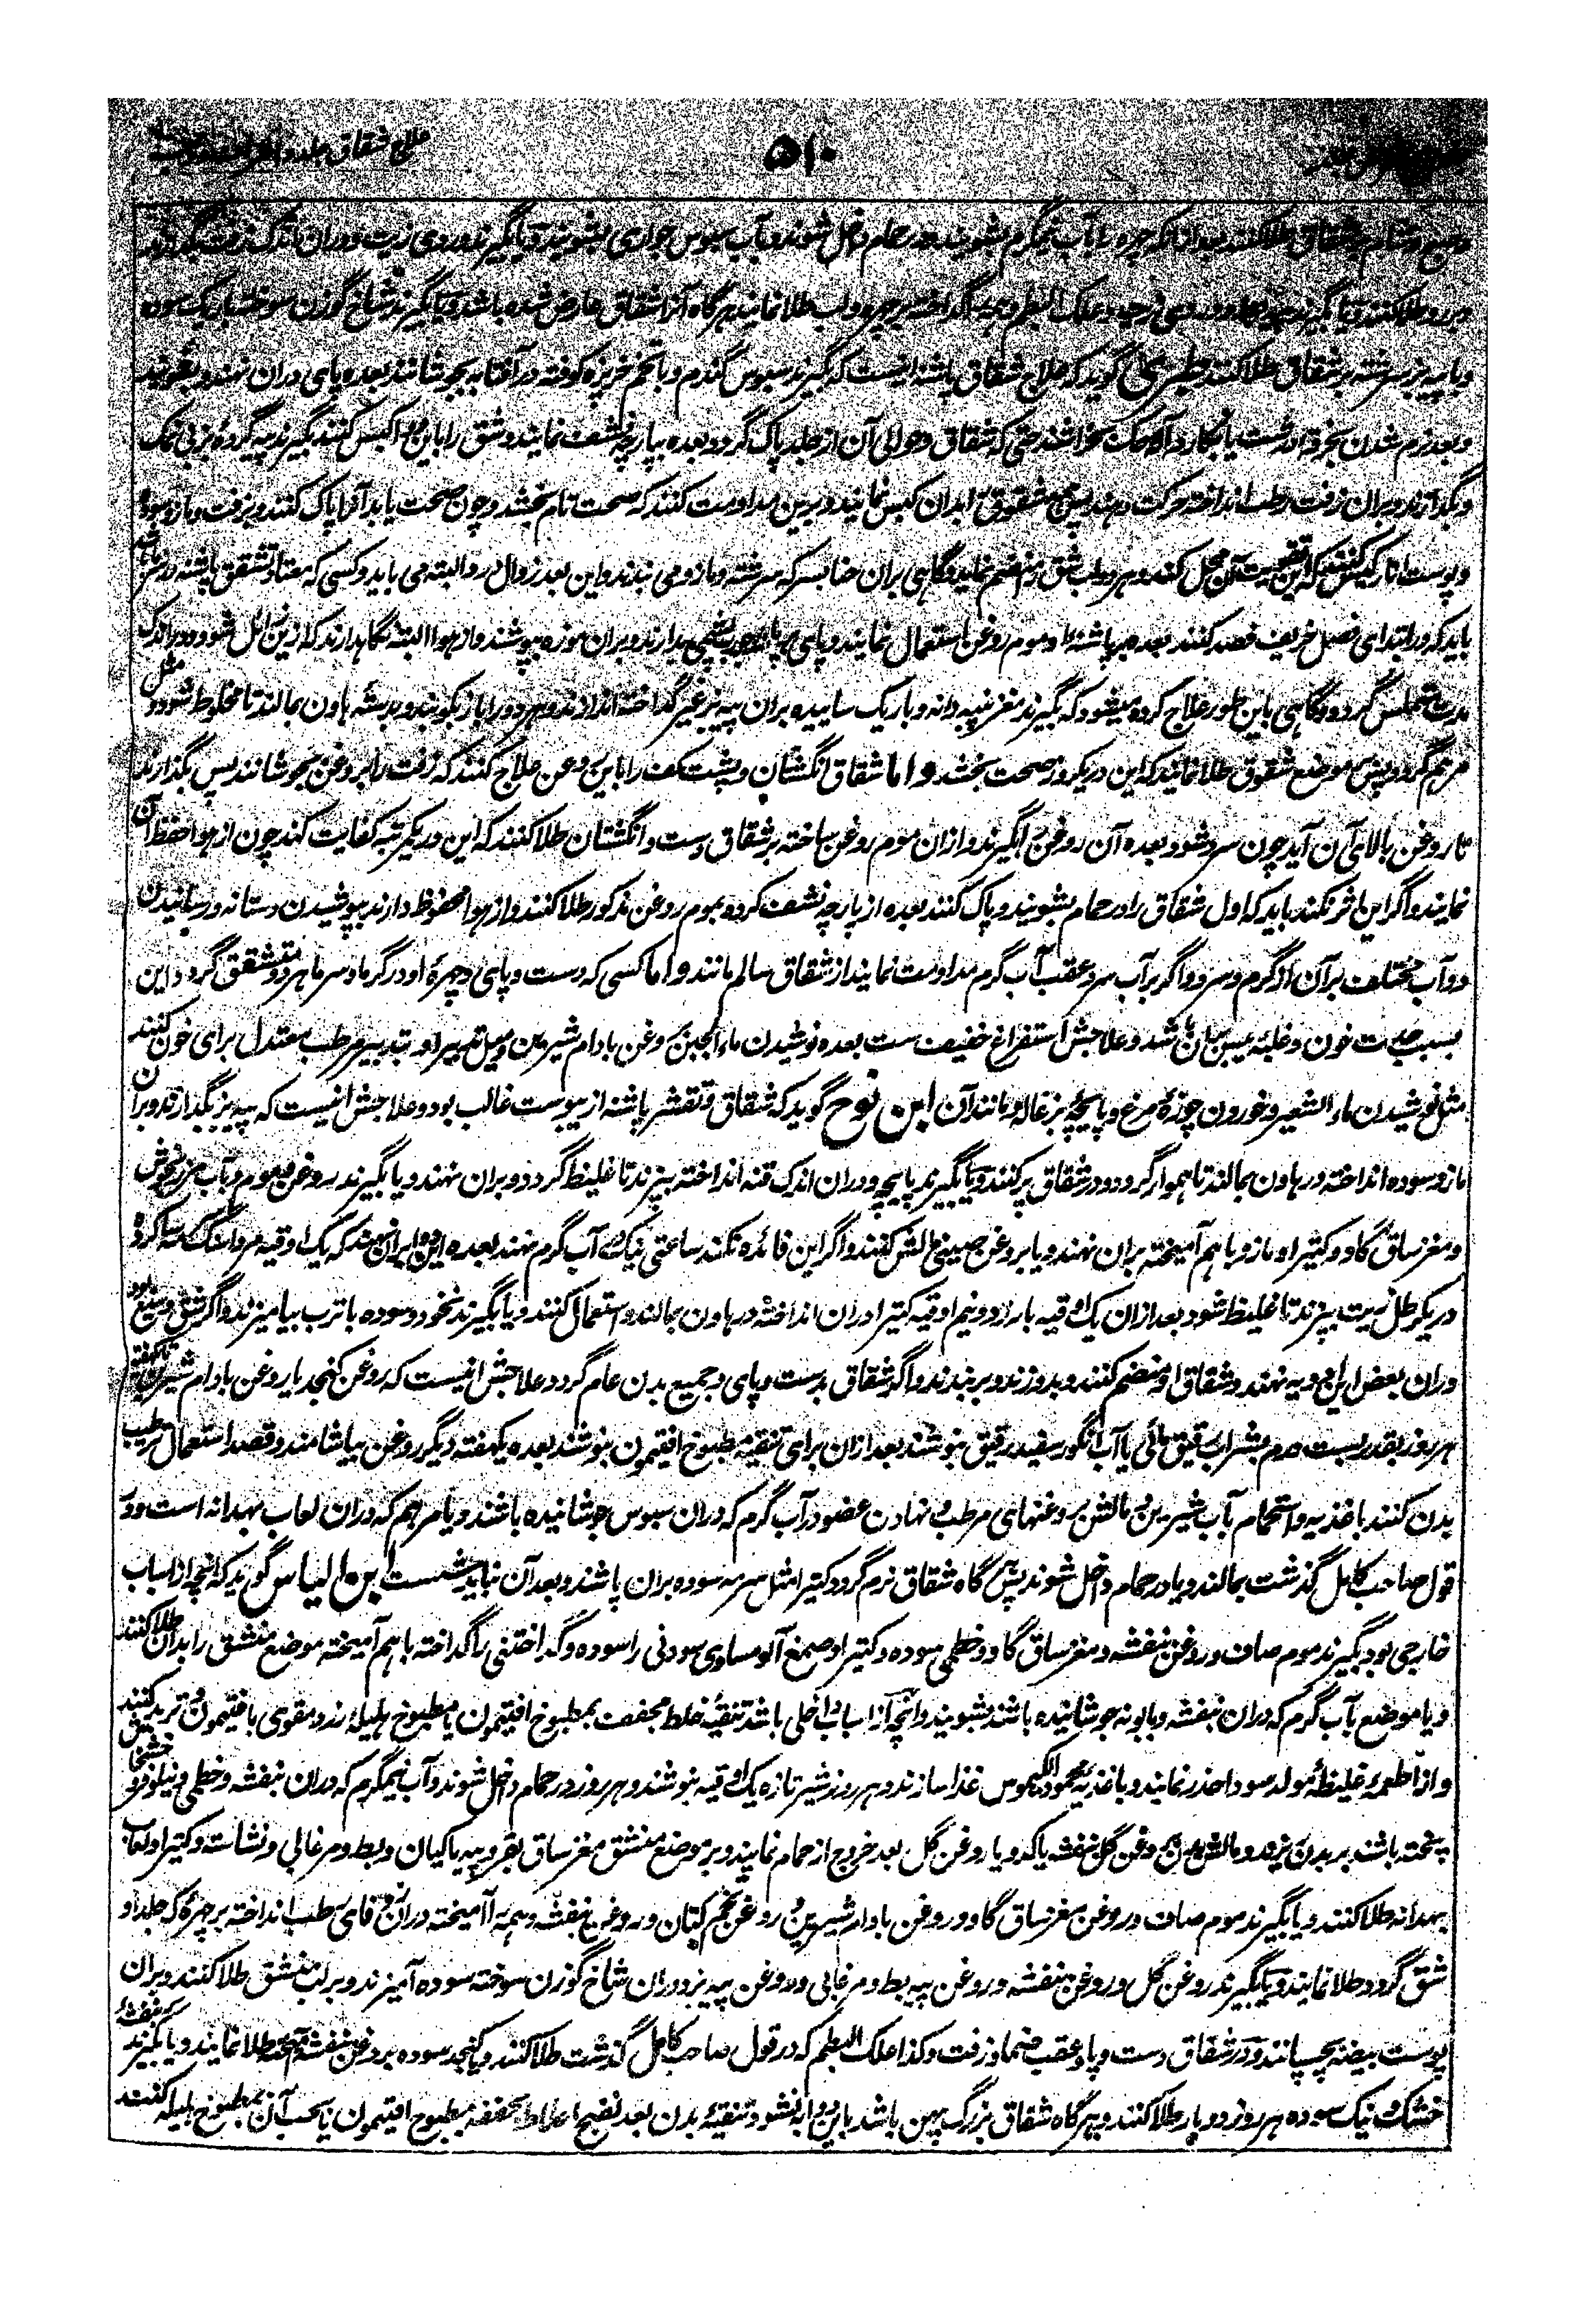 علاج شقاق جلد و
۵۱۰
و صبح و شام بر شقاق طلا کنند بعد از آنکه چهره را بآب نیمگرم بشویند و در حمام داخل شوند و بآب سبوس جواری بشویند و یا بگیرند دردی زیت و دران اندک زفت بگدازند
و بر رو طلا کنند و یا بگیرند و علک البطم و پیه گداخته بر چهره و لب طلا نمایند هرگاه آنرا شقاق عارض شده باشد و یا بگیرند شاخ گوزن سوخته باریک سوده
و با پیه بز سرشته بر شقاق طلا کنند طبری گوید که علاج شقاق پاشنه اینست که بگیرند سبوس گندم و با تخم خربزه کوفته در آفتابه بجوشانند بعده پای دران نهند و بشویند
و بعد نرم شدن بخرقه درشت یا بکارد آهسته بخراشند حتی که شقاق و حوالی آن از جلد پاک گردد بعده بپارچه نشف نمایند و شق را باین دوا کبس کنند بگیرند پیه گرده بز بی نمک
و بگدازند و بران زفت رطب انداخته حرکت دهند پس موضع مشقوق را بدان کبس نمایند و برین مداومت کنند که صحت تام بخشد و چون صحت یابد آنرا پاک کنند و بزفت و مازو سوده
و پوست انار کبس کنند که این تقویت آن محل کند و هر دو لب شق را منضم نماید و گاهی بران حنا بسرکه سرشته و مازو می بندند و این بعد زوال درد البته می باید و کسی که معتاد تشقق پاشنه در سرما باشد
باید که در ابتدای فصل خریف فصد کنند بعده بر پاشنه او موم روغن استعمال نمایند و پای بپاتابه پشمی بدارند و بران موزه بپوشند و از هوا البته نگاهدارند که ازین زائل شود و در اندک
مدت مملس گردد و گاهی باین طور علاج کرده میشود که بگیرند مغز پنبه دانه و باریک ساییده بران پیه بز غیر گداخته اندازند و هر دو را باز بکوبند و بدسته هاون بمالند تا مخلوط شود و مثل
مرهم گردد پس بر موضع شقوق طلا نمایند که این در یکروز صحت بخشد و اما شقاق انگشتان و پشت کف را باین روغن علاج کنند که زفت را بروغن بجوشانند پس بگذارند
تا روغن بالای آن آید چون سرد شود بعده آن روغن را بگیرند و ازان موم روغن ساخته بر شقاق دست و انگشتان طلا کنند که این در یکمرتبه کفایت کند چون از هوا حفظ آن
نمایند و اگر این اثر نکند باید که اول شقاق را در حمام بشویند و پاک کنند بعده از پارچه نشف کرده بموم روغن مذکور طلا کنند و از هوا محفوظ دارند بپوشیدن دستانه و رسانیدن
دو آب مختلف بر آن از گرم و سرد و اگر بر آب سرد عقب آب گرم مداومت نمایند از شقاق سالم مانند و اما کسی که دست و پای و چهرهٔ او در گرما و سرما هر دو متشقق گردد این
بسبب حدت خون و غلبه یبس بران باشد و علاجش استفراغ خفیف ست بعده نوشیدن ماء الجبن بروغن بادام شیرین و میل تدبیر او بتدبیر مرطب معتدل برای خون کنند
مثل نوشیدن ماء الشعیر و خوردن چوزهٔ مرغ و پاچهٔ بزغاله و مانند آن ابن نوح گوید که شقاق و تقشر پاشنه از یبوست غالب بود و علاجش اینست که پیه بز بگدازند و بران
مازو سوده انداخته در هاون بمالند تا هموار گردد و در شقاق پر کنند و یا بگیرند پاچه و دران اندک قنه انداخته بپزند تا غلیظ گردد و بران نهند و یا بگیرند روغن موم و آب مرزنجوش
و مغز ساق گاو و کتیرا و مازو با هم آمیخته بران نهند و یا بروغن چینی مالش کنند و اگر این فائده نکند ساعتی نیک در آب گرم نهند بعده این دوا بران نهند که یک اوقیه مرداسنگ سه کرده
در یکرطل زیت بپزند تا غلیظ شود بعد ازان یک اوقیه بارزد و نیم اوقیه کتیرا دران انداخته در هاون بمالند و استعمال کنند و یا بگیرند نخود و سوده با ترب بیامیزند و اگر شق وسیع بود
دران بعض این ادویه نهند و شقاق او منضم کنند و بدوزند و بر بندند و اگر شقاق بدست و پای و جمیع بدن عام گردد علاجش اینست که روغن کنجد یا روغن بادام شیرین تا یکهفته
هر روز بقدر بست درم بشراب رقیق مائی یا آب انگور سفید رقیق بنوشند بعد ازان برای تنقیه مطبوخ افتیمون بنوشند بعده یکهفته دیگر روغن بیاشامند و قصد استعمال ترطیب
بدن کنند باغذیه و استحمام بآب شیرین و مالش بروغنهای مرطب و نهادن عضو در آب گرم که دران سبوس جوشانیده باشند و یا مرهم که دران لعاب بهدانه است و در
قول صاحب کامل گذشت بمالند و یا در حمام داخل شوند پس هرگاه شقاق نرم گردد کتیرا مثل سرمه سوده بران پاشند و بعد آن نباید شست ابن الیاس گوید که آنچه از اسباب
خارجی بود بگیرند موم صاف و روغن بنفشه و مغز ساق گاو و خطمی سوده و کتیرا و صمغ آلو مساوی سودنی را سوده و گداختنی را گداخته با هم آمیخته موضع منشق را بدان طلا کنند
و یا موضع بآب گرم که دران بنفشه و بابونه جوشانیده باشند بشویند و آنچه از اسباب داخلی باشد تنقیهٔ خلط مجفف بمطبوخ افتیمون یا مطبوخ هلیلهٔ زرد مقوی بافتیمون و تربد کنند
و از اطعمه غلیظه مولد سودا حذر نمایند و باغذیه محمود الکیموس غذا سازند و هر روز شیر تازه یک اوقیه بنوشند و هر روز در حمام داخل شوند و آب نیمگرم که دران بنفشه و خطمی و نیلوفر و خشخاش
پخته باشند بر بدن بریزند و مالش بدن بروغن گل بنفشه یا کدو یا روغن گل بعد خروج از حمام نمایند و بر موضع منشق مغز ساق بقر و پیه ماکیان و بط و مرغابی و نشاسته و کتیرا و لعاب
بهدانه طلا کنند و یا بگیرند موم صاف و روغن مغز ساق گاو و روغن بادام شیرین و روغن تخم کتان و روغن بنفشه و همه را آمیخته دران زوفای رطب انداخته بر چهرهٔ که جلد او
شق گردد طلا نمایند و یا بگیرند روغن گل و روغن بنفشه و روغن پیه بط و مرغابی و روغن پیه بز و دران شاخ گوزن سوخته سوده آمیزند و بر لب منشق طلا کنند و بران
پوست بیضه بچسپانند و در شقاق دست و پا و عقب ضماد زفت و کذا علک البطم که در قول صاحب کامل گذشت طلا کنند و یا کنجد سوده بروغن بنفشه آمیخته طلا نمایند و یا بگیرند بنفشهٔ
خشک و نیک سوده هر روز دو بار طلا کنند و هرگاه شقاق بزرگ پهن باشد باین دوا به نشود تنقیهٔ بدن بعد نضج اخلاط محففه بمطبوخ افتیمون یا بحب آن بمطبوخ هلیله کنند